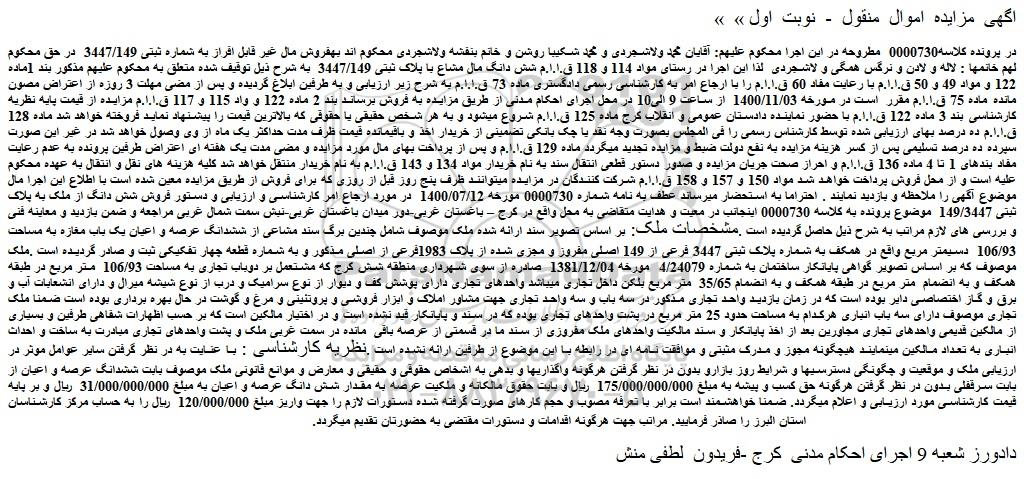 اگهی مزایده اموال منقول - نوبت اول » »
در پرونده کلاسه0000730 مطروحه در این اجرا محکوم علیهم: آقایان محمد ولاشجردی و محمد شکیبا روشن و خانم بنفشه ولاشجردی محکوم اند بهفروش مال غیر قابل افراز به شماره ثبتی 3447/149 در حق محکوم
لهم خانمها : لاله و لادن و نرگس همگی و لاشجردی لذا این اجرا در رستای مواد 114 و 118 ق.ا.ا.م شش دانگ مال مشاع با پلاک ثبتی 3447/149 به شرح ذیل توقیف شده متعلق به محکوم علیهم مذکور بند 1ماده
122 و مواد 49 و 50 ق.ا.ا.م با رعایت مفاد 60 ق.ا.ا.م را با ارجاع امر به کارشناسی رسمی دادگستری ماده 73 ق.ا.ا.م به شرح زیر ارزیابی و به طرفین ابلاغ گردیده و پس از مضی مهلت 3 روزه از اعتراض مصون
مانده ماده 75 ق.ا.ا.م مقرر است در مورخه 1400/11/03 از ساعت 9 الی10 در محل اجرای احکام مدنی از طریق مزایده به فروش برساند بند 2 ماده 122 و واد 115 و 117 ق.ا.ا.م مزایده از قیمت پایه نظریه
کارشناسی بند 3 ماده 122 ق.ا.ا.م با حضور نماینده دادستان عمومی و انقلاب کرج ماده 125 ق.ا.ا.م شروع میشود و به هر شخص حقیقی یا حقوقی که بالاترین قیمت را پیشنهاد نماید فروخته خواهد شد ماده 128
ق.ا.ا.م ده درصد بهای ارزیابی شده توسط کارشناس رسمی را فی المجلس بصورت وجه نقد یا چک بانکی تضمینی از خریدار اخذ و باقیمانده قیمت ظرف مدت حداکثر یک ماه از وی وصول خواهد شد در غیر این صورت
سپرده ده درصد تسلیمی پس از کسر هزینه مزایده به نفع دولت ضبط و مزایده تجدید میگردد ماده 129 ق.ا.ا.م و پس از پرداخت بهای مال مورد مزایده و مضی مدت یک هفته ای اعتراض طرفین پرونده به عدم رعایت
مفاد بندهای 1 تا 4 ماده 136 ق.ا.ا.م و احراز صحت جریان مزایده و صدور دستور قطعی انتقال سند به نام خریدار مواد 134 و 143 ق.ا.ا.م به نام خریدار منتقل خواهد شد کلیه هزینه های نقل و انتقال به عهده محکوم
علیه است و از محل فروش پرداخت خواهد شد مواد 150 و 157 و 158 ق.ا.ا.م شرکت کنندگان در مزایده میتوانند ظرف پنج روز قبل از روزی که برای فروش از طریق مزایده معین شده است با اطلاع این اجرا مال
موضوع آگهی را ملاحظه و بازدید نمایند . احتراما به استحضار میرساند عطف به نامه شماره 0000730 مورخه 1400/07/12 در مورد ارجاع امر کارشناسی و ارزیابی و دستور فروش شش دانگ از ملک به پلاک
ثبتی 149/3447 موضوع پرونده به کلاسه 0000730 اینجانب در معیت و هدایت متقاضی به محل واقع در کرج – باغستان غربی-دور میدان باغستان غربی-نبش سمت شمال غربی مراجعه و ضمن بازدید و معاینه فنی
و بررسی های لازم مراتب به شرح ذیل حاصل گردیده است .مشخصات ملک: بر اساس تصویر سند ارائه شده ملک موصوف شامل چندین برگ سند مشاعی از ششدانگ عرصه و اعیان یک باب مغازه به مساحت
106/93 دسیمتر مربع واقع در همکف به شماره پلاک ثبتی 3447 فرعی از 149 اصلی مفروز و مجزی شده از پلاک 1983فرعی از اصلی مذکور و به شماره قطعه چهار تفکیکی ثبت و صادر گردیده است .ملک
موصوف که بر اساس تصویر گواهی پایانکار ساختمان به شماره 4/24079 مورخه 1381/12/04 صادره از سوی شهرداری منطقه شش کرج که مشتمل بر دوباب تجاری به مساحت 106/93 متر مربع در طبقه
همکف و به انضمام متر مربع در طبقه همکف و به انضمام 35/65 متر مربع بلکن داخل تجاری میباشد واحدهای تجاری دارای پوشش کف و دیوار از نوع سرامیک و درب از نوع شیشه میرال و دارای انشعابات آب و
برق و گاز اختصاصی دایر بوده است که در زمان بازدید واحد تجاری مذکور به سه باب و سه واحد تجاری جهت مشاور املاک و ابزار فروشی و پروتئینی و مرغ و گوشت در حال بهره برداری بوده است ضمنا ملک
تجاری موصوف دارای سه باب انباری هرکدام به مساحت حدود 25 متر مربع در پشت واحدهای تجاری بوده که در سند و پایانکار قید نشده است و در اختیار مالکین است که بر حسب اظهارات شفاهی طرفین و بسیاری
از مالکین قدیمی واحدهای تجاری مجاورین بعد از اخذ پایانکار و سند مالکیت واحدهای ملک مفروزی از سند ما در قسمتی از عرصه باقی مانده در سمت غربی ملک و پشت واحدهای تجاری مبادرت به ساخت و احداث
انباری به تعداد مالکین مینمایند هیچگونه مجوز و مدرک مثبتی و موافقت نامه ای در رابطه با این موضوع از طرفین ارائه نشده است .نظریه کارشناسی : با عنایت به در نظر گرفتن سایر عوامل موثر در
ارزیابی ملک و موقعیت و چگونگی دسترسیها و شرایط روز بازارو بدون در نظر گرفتن هرگونه واگذاریها و بدهی به اشخاص حقوقی و حقیقی و معارض و موانع قانونی ملک موصوف بابت ششدانگ عرصه و اعیان از
بابت سرقفلی بدون در نظر گرفتن هرگونه حق کسب و پیشه به مبلغ 175/000/000/000 ریال و بابت حقوق مالکانه و ملکیت عرصه به مقدار شش دانگ عرصه و اعیان به مبلغ 31/000/000/000 ریال و بر پایه
قیمت کارشناسی مورد ارزیابی و اعلام میگردد. ضمنا خواهشمند است برابر با تعرفه مصوب و حجم کارهای صورت گرفته شده دستورات لازم را جهت واریز مبلغ 120/000/000 ریال را به حساب مرکز کارشناسان
استان البرز را صادر فرمایید. مراتب جهت هرگونه اقدامات و دستورات مقتضی به حضورتان تقدیم میگردد.
دادورز شعبه 9 اجرای احکام مدنی کرج -فریدون لطفی منش